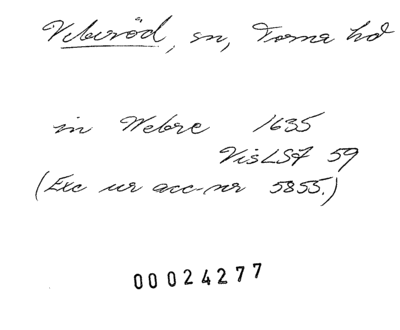 Veberöd, sn, Torna hd
in Webre 1635
VisLSF 59
(Exc ur acc-nr 5855.)
00024277